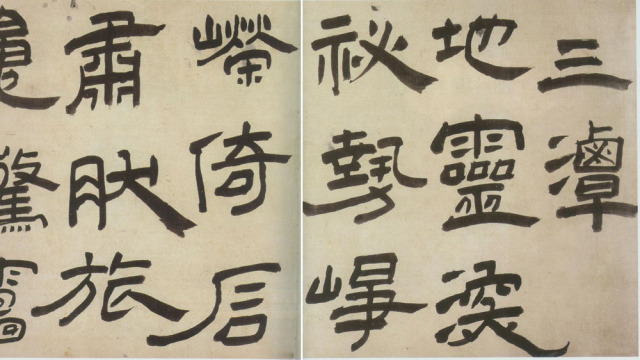 三潭
地靈
祕勢崢
嶸倚后
肅肰旅
驚